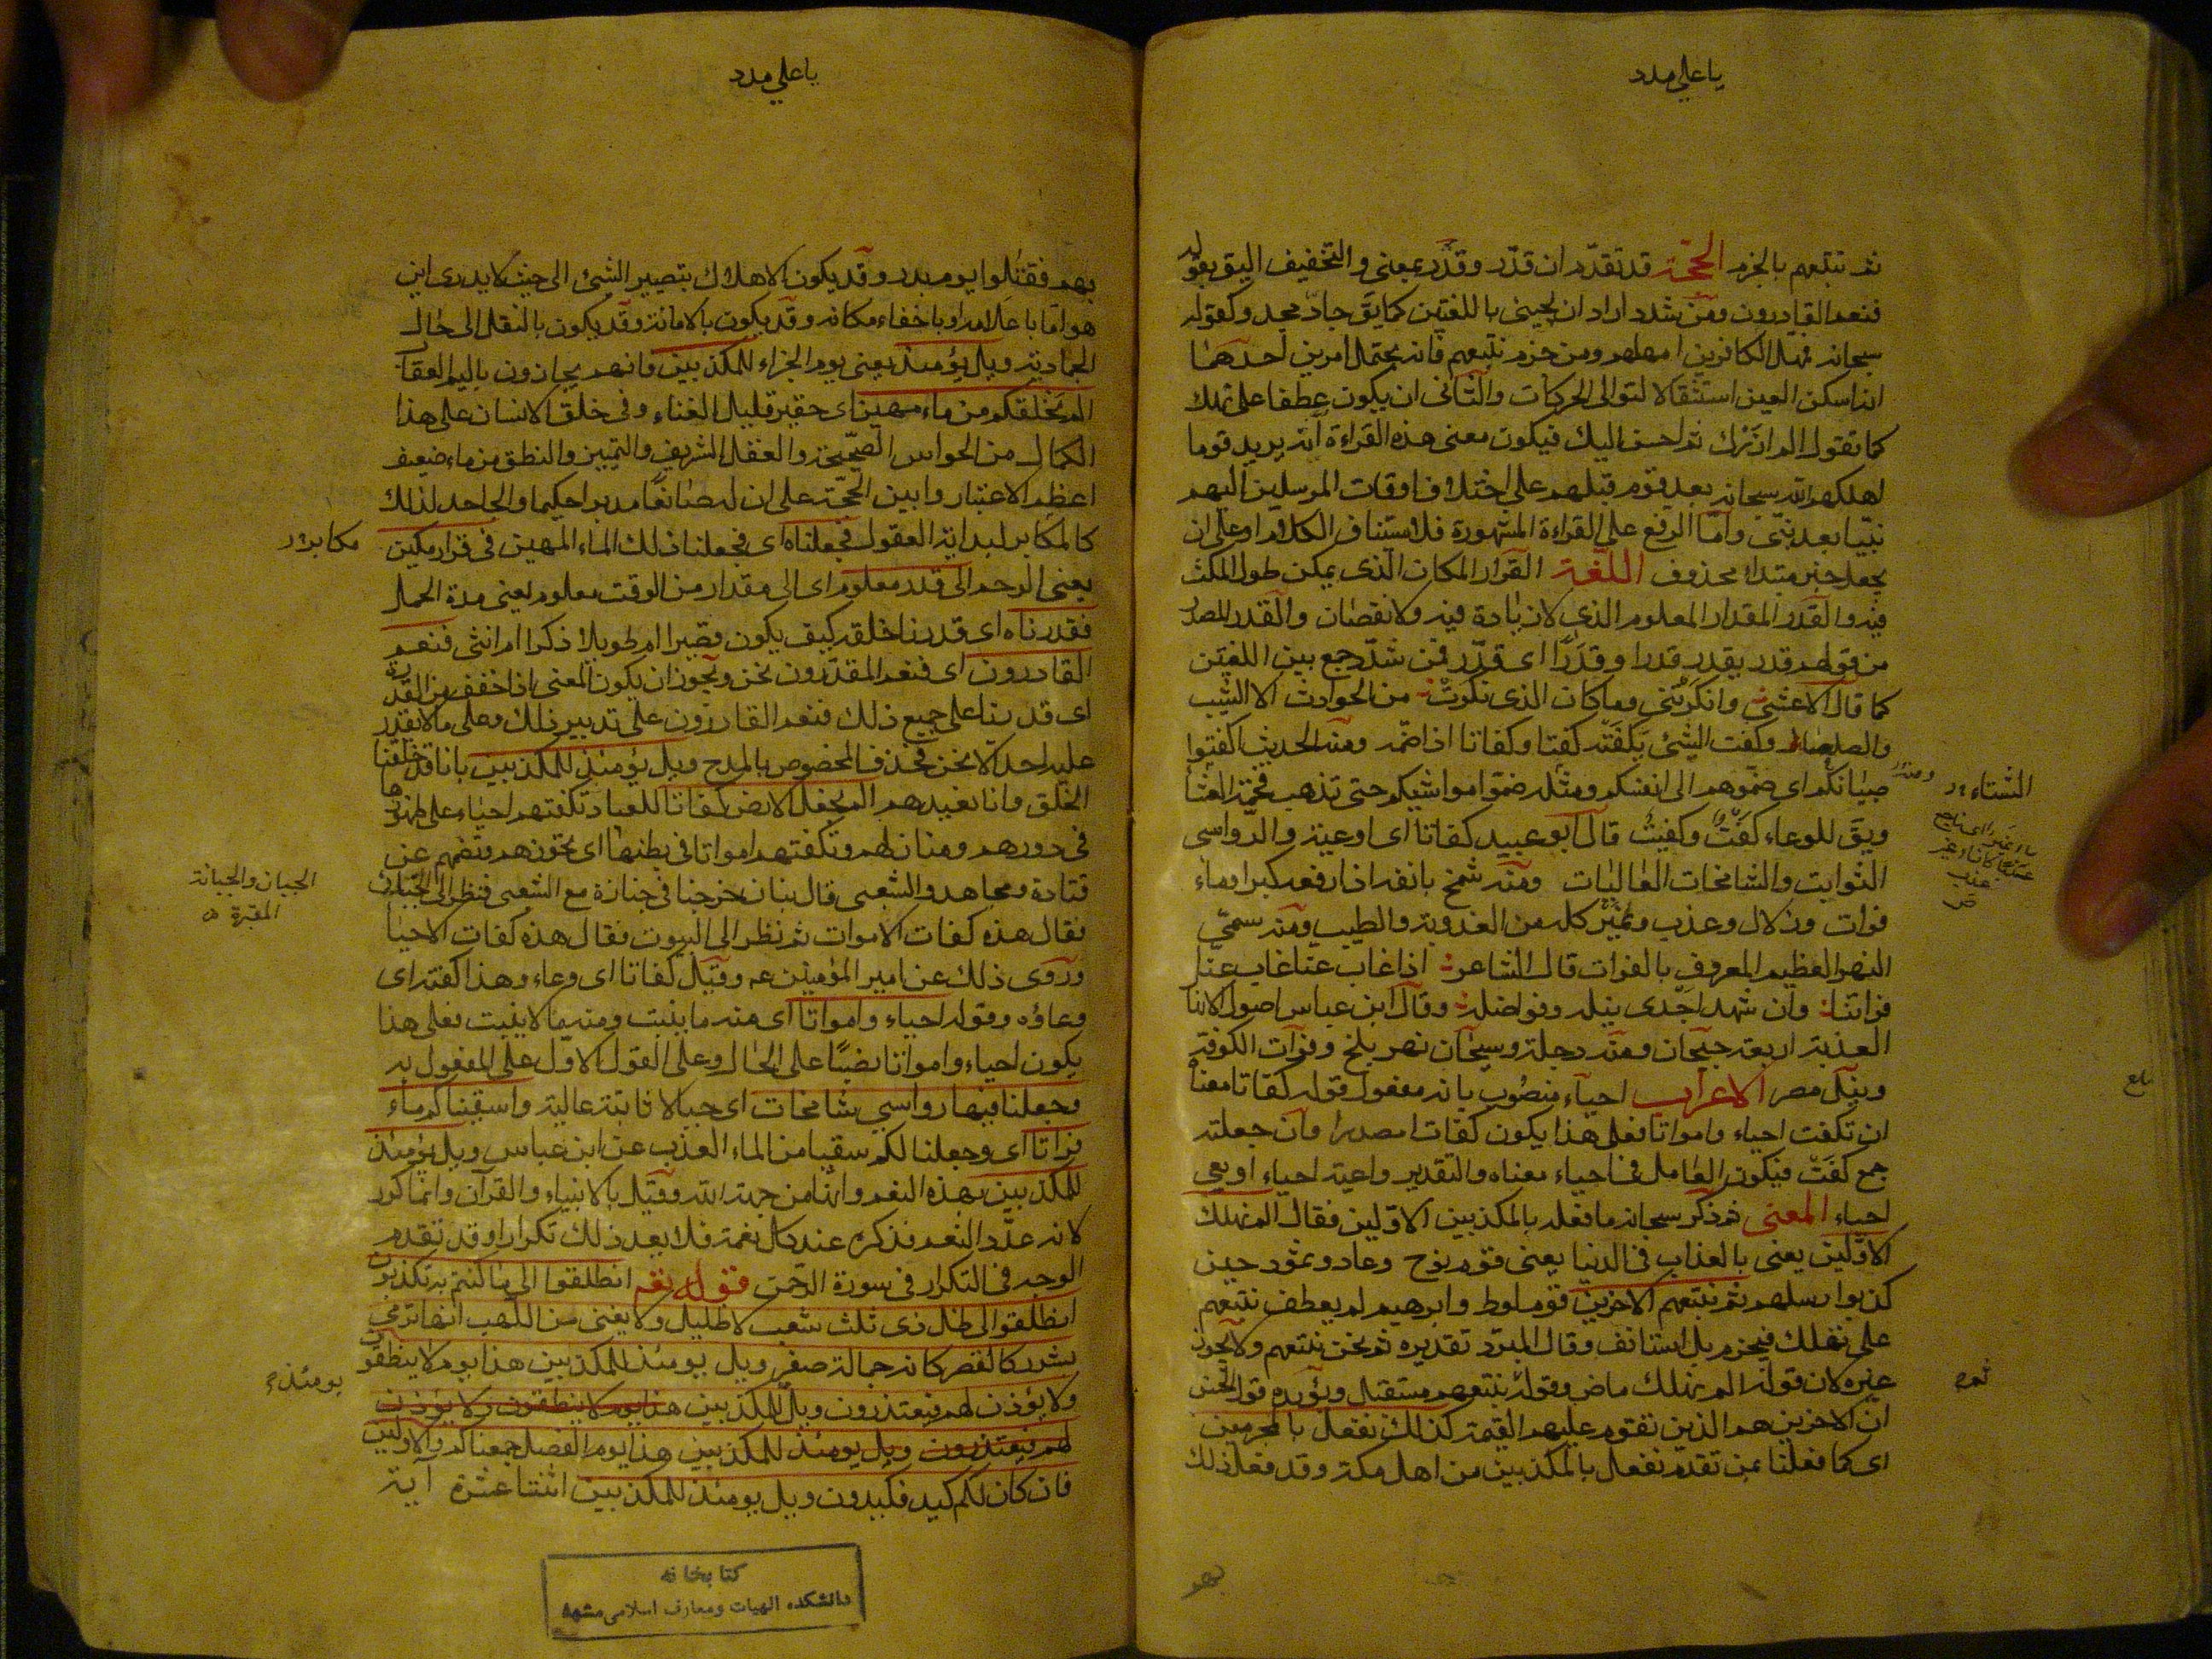 يا علي مدد
ثم نتبعهم بالجزم الحجّة قد تقدّم ان قدّر وقدَر بمعنى والتخفيف اليق بقوله
فنعم القادرون ومن شدد اراد ان يجيئ باللغتين كما يقَ جادّ مجد وكقوله
سبحانه فمهل الكافرين امهلهم ومن جزم نتبعهم فانه يحتمل امرين احدهما
انه اسكن العين استثقالا لتوالى الحركات والثانى ان يكون عطفا على نهلك
كما تقول الم ازرك ثم احسن اليك فيكون معنى هذه القراءة انه يريد قوما
اهلكهم الله سبحانه بعد قوم قبلهم على اختلاف اوقات المرسلين اليهم
نبيّا بعد نبّى وامّا الرفع على القراءة المشهورة فلاستيناف الكلام او على ان
يجعل خبر مبتداء محذوف اللّغة القرار المكان الّذى يمكن طول المكث
فيه والقدر المقدار المعلوم الذى لا زيادة فيه ولا نقصان والقدر المصدر
من قولهم قدر يقدر قدرا وقدَرًا اى قدّر فمن شدّد جمع بين اللغتين
كما قال الاعشى وانكرتنى وما كان الذى نكرت من الحوادث الا الشيب
والصلعا وكفت الشئ يكفته كفتا وكفاتا اذا ضمّه ومنه الحديث اكفتوا
صبيانكم اى ضمّوهم الى انفسكم ومثله ضمّوا مواشيكم حتى تذهب فحمة العشا
ويقَ للوعاء كفت وكفيت قال ابو عبيد كفاتا اى اوعية والرواسى
الثوابت والشامخات العاليات ومنه شمخ بانفه اذا رفعه كبرا وماء
فرات وزلال وعذب ونمير كله من العذوبة والطيب ومنه سمّى
النهر العظيم المعروف بالفرات قال الشاعر اذا غاب عنا غاب عنا
فراتنا وان شهد اجدى نيله وفواضله وقال ابن عباس اصول الانها
العذبة اربعة جيحان ومنه دجلة وسيحان نهر بلخ وفرات الكوفة
ونيل مصر الاعراب احياء منصوب بانه مفعول قوله كفاتا معنا
ان تكفت احياء وامواتا فعلى هذا يكون كفاتا مصدرا وان جعلته
جمع كفت فيكون العامل فى احياء معناه والتقدير واعية احياء او يعى
احياء المعنى ثم ذكر سبحانه ما فعله بالمكذبين الاولين فقال الم نهلك
الاوّلين يعنى بالعذاب فى الدنيا يعنى قوم نوح وعاد وثمود حين
كذبوا رسلهم ثم نتبعهم الاخرين قوم لوط وابرهيم لم يعطف نتبعهم
على نهلك فيجزم بل استانف وقال المبرّد تقديره ثم نحن نتبعهم ولا يجوز
غيره لان قوله الم نهلك ماض وقوله نتبعهم مستقبل ويؤيده قول الحسن
ان الاخرين هم الذين تقوم عليهم القيمة كذلك نفعل بالمجرمين
اى كما فعلنا بمن تقدم نفعل بالمكذبين من اهل مكة وقد فعل ذلك
الشتاء
ثم
بهم
يا علي مدد
بهم فقتلوا يوم بدر وقد يكون الاهلاك بتصيير الشئ الى حيث لا يدرى اين
هو امّا باعدامه او باخفاء مكانه وقد يكون بالاماتة وقد يكون بالنقل الى حال
الجمادية ويل يومئذ يعنى يوم الجزاء للمكذبين فانهم يجازون باليم العقا
الم نخلقكم من ماء مهين اى حقير قليل الغناء وفى خلق الانسان على هذا
الكمال من الحواس الصّحيحة والعقل الشريف والتمييز والنطق من ماء ضعيف
اعظم الاعتبار وابين الحجّة على ان له صانعًا مدبرا حكيما والجاحد لذلك
كالمكابر لبداية العقول فجعلناه اى فجعلنا ذلك الماء المهين فى قرار مكين
يعنى الرحم الى قدر معلوم اى الى مقدار من الوقت معلوم يعنى مدة الحمل
فقدرناه اى قدرنا خلقه كيف يكون قصيرا ام طويلا ذكرا ام انثى فنعم
القادرون اى فنعم المقدّرون نحن ويجوز ان يكون المعنى اذا خفف من القدرة
اى قدرنا على جميع ذلك فنعم القادرون على تدبير ذلك وعلى ما لا يقدر
عليه احد الّا نحن فحذف المخصوص بالمدح ويل يومئذ للمكذبين بانا قد خلقنا
الخلق وانا نعيدهم الم نجعل الارض كفاتا للعباد تكفتهم احياء على ظهرها
فى دورهم ومنازلهم وتكفتهم امواتا فى بطنها اى تحوزهم وتضمهم عن
قتادة ومجاهد والشعبى قال بنان خرجنا فى جنازة مع الشعبى فنظر الى الجبّان
فقال هذه كفات الاموات ثم نظر الى البيوت فقال هذه كفات الاحيا
وروى ذلك عن امير المؤمنين عه وقيل كفاتا اى وعاء وهذا كفته اى
وعاؤه وقوله احياء وامواتا اى منه ما ينبت ومنه ما لا ينبت فعلى هذا
يكون احياء وامواتا نصبًا على الحال وعلى القول الاوّل على المفعول به
وجعلنا فيها رواسى شامخات اى جبالا ثابتة عالية واسقيناكم ماء
فراتا اى وجعلنا لكم سقيا من الماء العذب عن ابن عباس ويل يومئذ
للمكذبين بهذه النعم وانّها من جهة الله وقيل بالانبياء والقرآن وانما كرر
لانه عدّد النعم فذكره عند كل نعمة فلا يعد ذلك تكرارا وقد تقدم
الوجه فى التكرار فى سورة الرّحمن قوله تعَ انطلقوا الى ما كنتم به تكذبون
انطلقوا الى ظل ذى ثلث شعب لا ظليل ولا يغنى من اللهب انها ترمى
بشرر كالقصر كانه جمالة صفر ويل يومئذ للمكذبين هذا يوم لا ينطقون
ولا يؤذن لهم فيعتذرون ويل للمكذبين هذا يوم لا ينطقون ولا يؤذن
لهم فيعتذرون ويل يومئذ للمكذبين هذا يوم الفصل جمعناكم والاولين
فان كان لكم كيد فكيدون ويل يومئذ للمكذبين اثنتا عشرة آية
الجبان والجبانة
المقبرة
يومئذ
كتابخانه
دانشكده الهيات ومعارف اسلامى مشهد